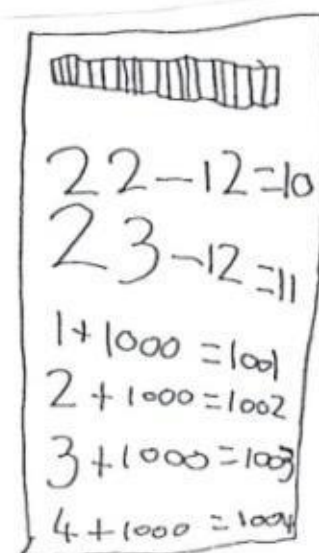 22-12=10
23-12=11
1+1000=1001
2+1000=1002
3+1000=1003
4+1000=1004